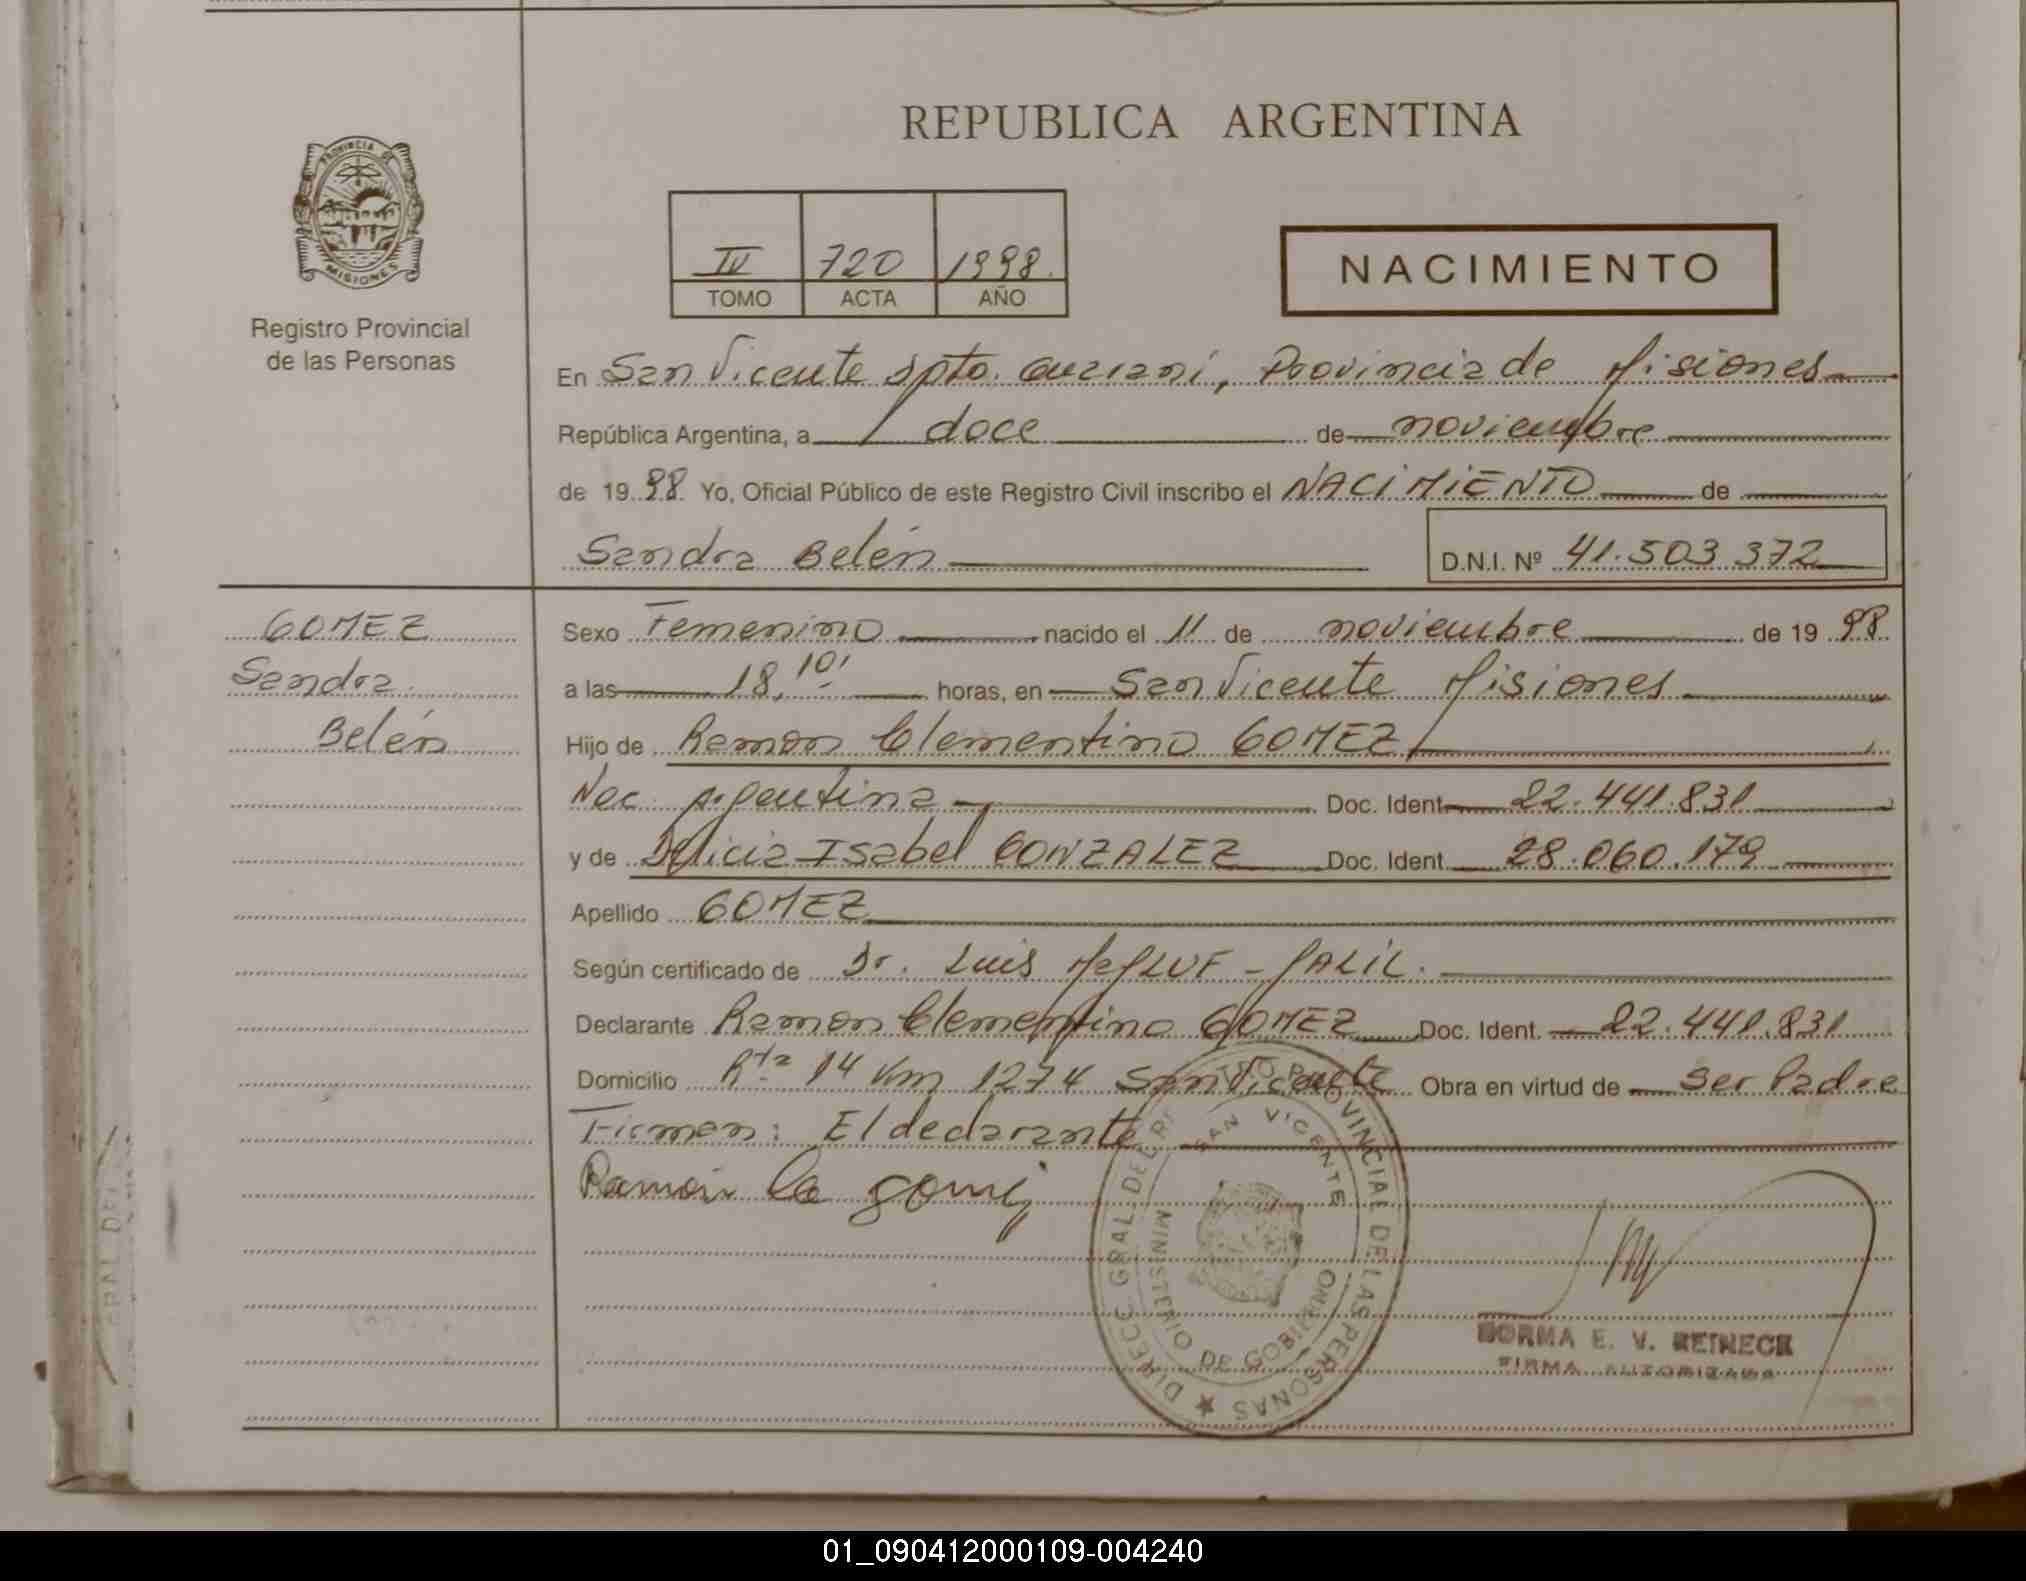 REPUBLICA ARGENTINA
PROVINCIA DE
MISIONES
Registro Provincial
de las Personas
IV 720 1998.
TOMO ACTA AÑO
NACIMIENTO
En San Vicente Dpto. Guaraní, Provincia de Misiones
República Argentina, a doce de noviembre
de 1998 Yo, Oficial Público de este Registro Civil inscribo el NACIMIENTO de
Sandra Belén D.N.I. Nº 41.503.372
GOMEZ
Sandra
Belén
Sexo Femenino nacido el 11 de noviembre de 1998
a las 18,10' horas, en San Vicente Misiones
Hijo de Ramon Clementino GOMEZ
Nac. Argentina Doc. Ident 22.441.831
y de Isabel GONZALEZ Doc. Ident 28.060.179
Apellido GOMEZ
Según certificado de Dr. Luis
Declarante Ramon Clementino GOMEZ Doc. Ident. 22.441.831
Domicilio Rta 14 Km 1274 San Vicente Obra en virtud de Ser Padre
Firman: El declarante
Ramón
DIRECC. GRAL. DEL PROVINCIAL DE LAS PERSONAS
SAN VICENTE
MINISTERIO DE GOBIERNO
NORMA E. V. REINECK
FIRMA AUTORIZADA
01_090412000109-004240